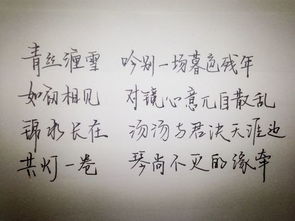 青丝缠雪 吟别一场暮色残年
如初相见 对镜心意兀自散乱
锦水长在 汤汤与君决天涯边
共灯一卷 琴尚不灭的缘牵